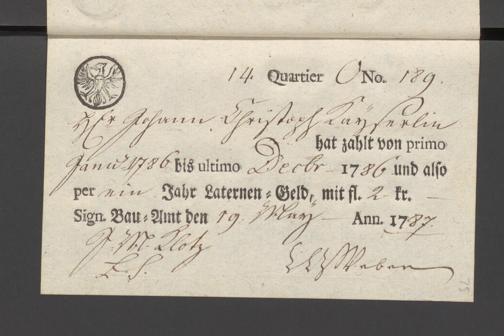 14. Quartier O No. 189.
Hr Johann Christoph Kayserlin
hat zahlt von primo
Janu. 1786 bis ultimo Decbr 1786 und also
per ein Jahr Laternen-Geld, mit fl. 2 kr. —
Sign. Bau-Amt den 19 May — Ann. 1787.
J. M. Klotz
Weber